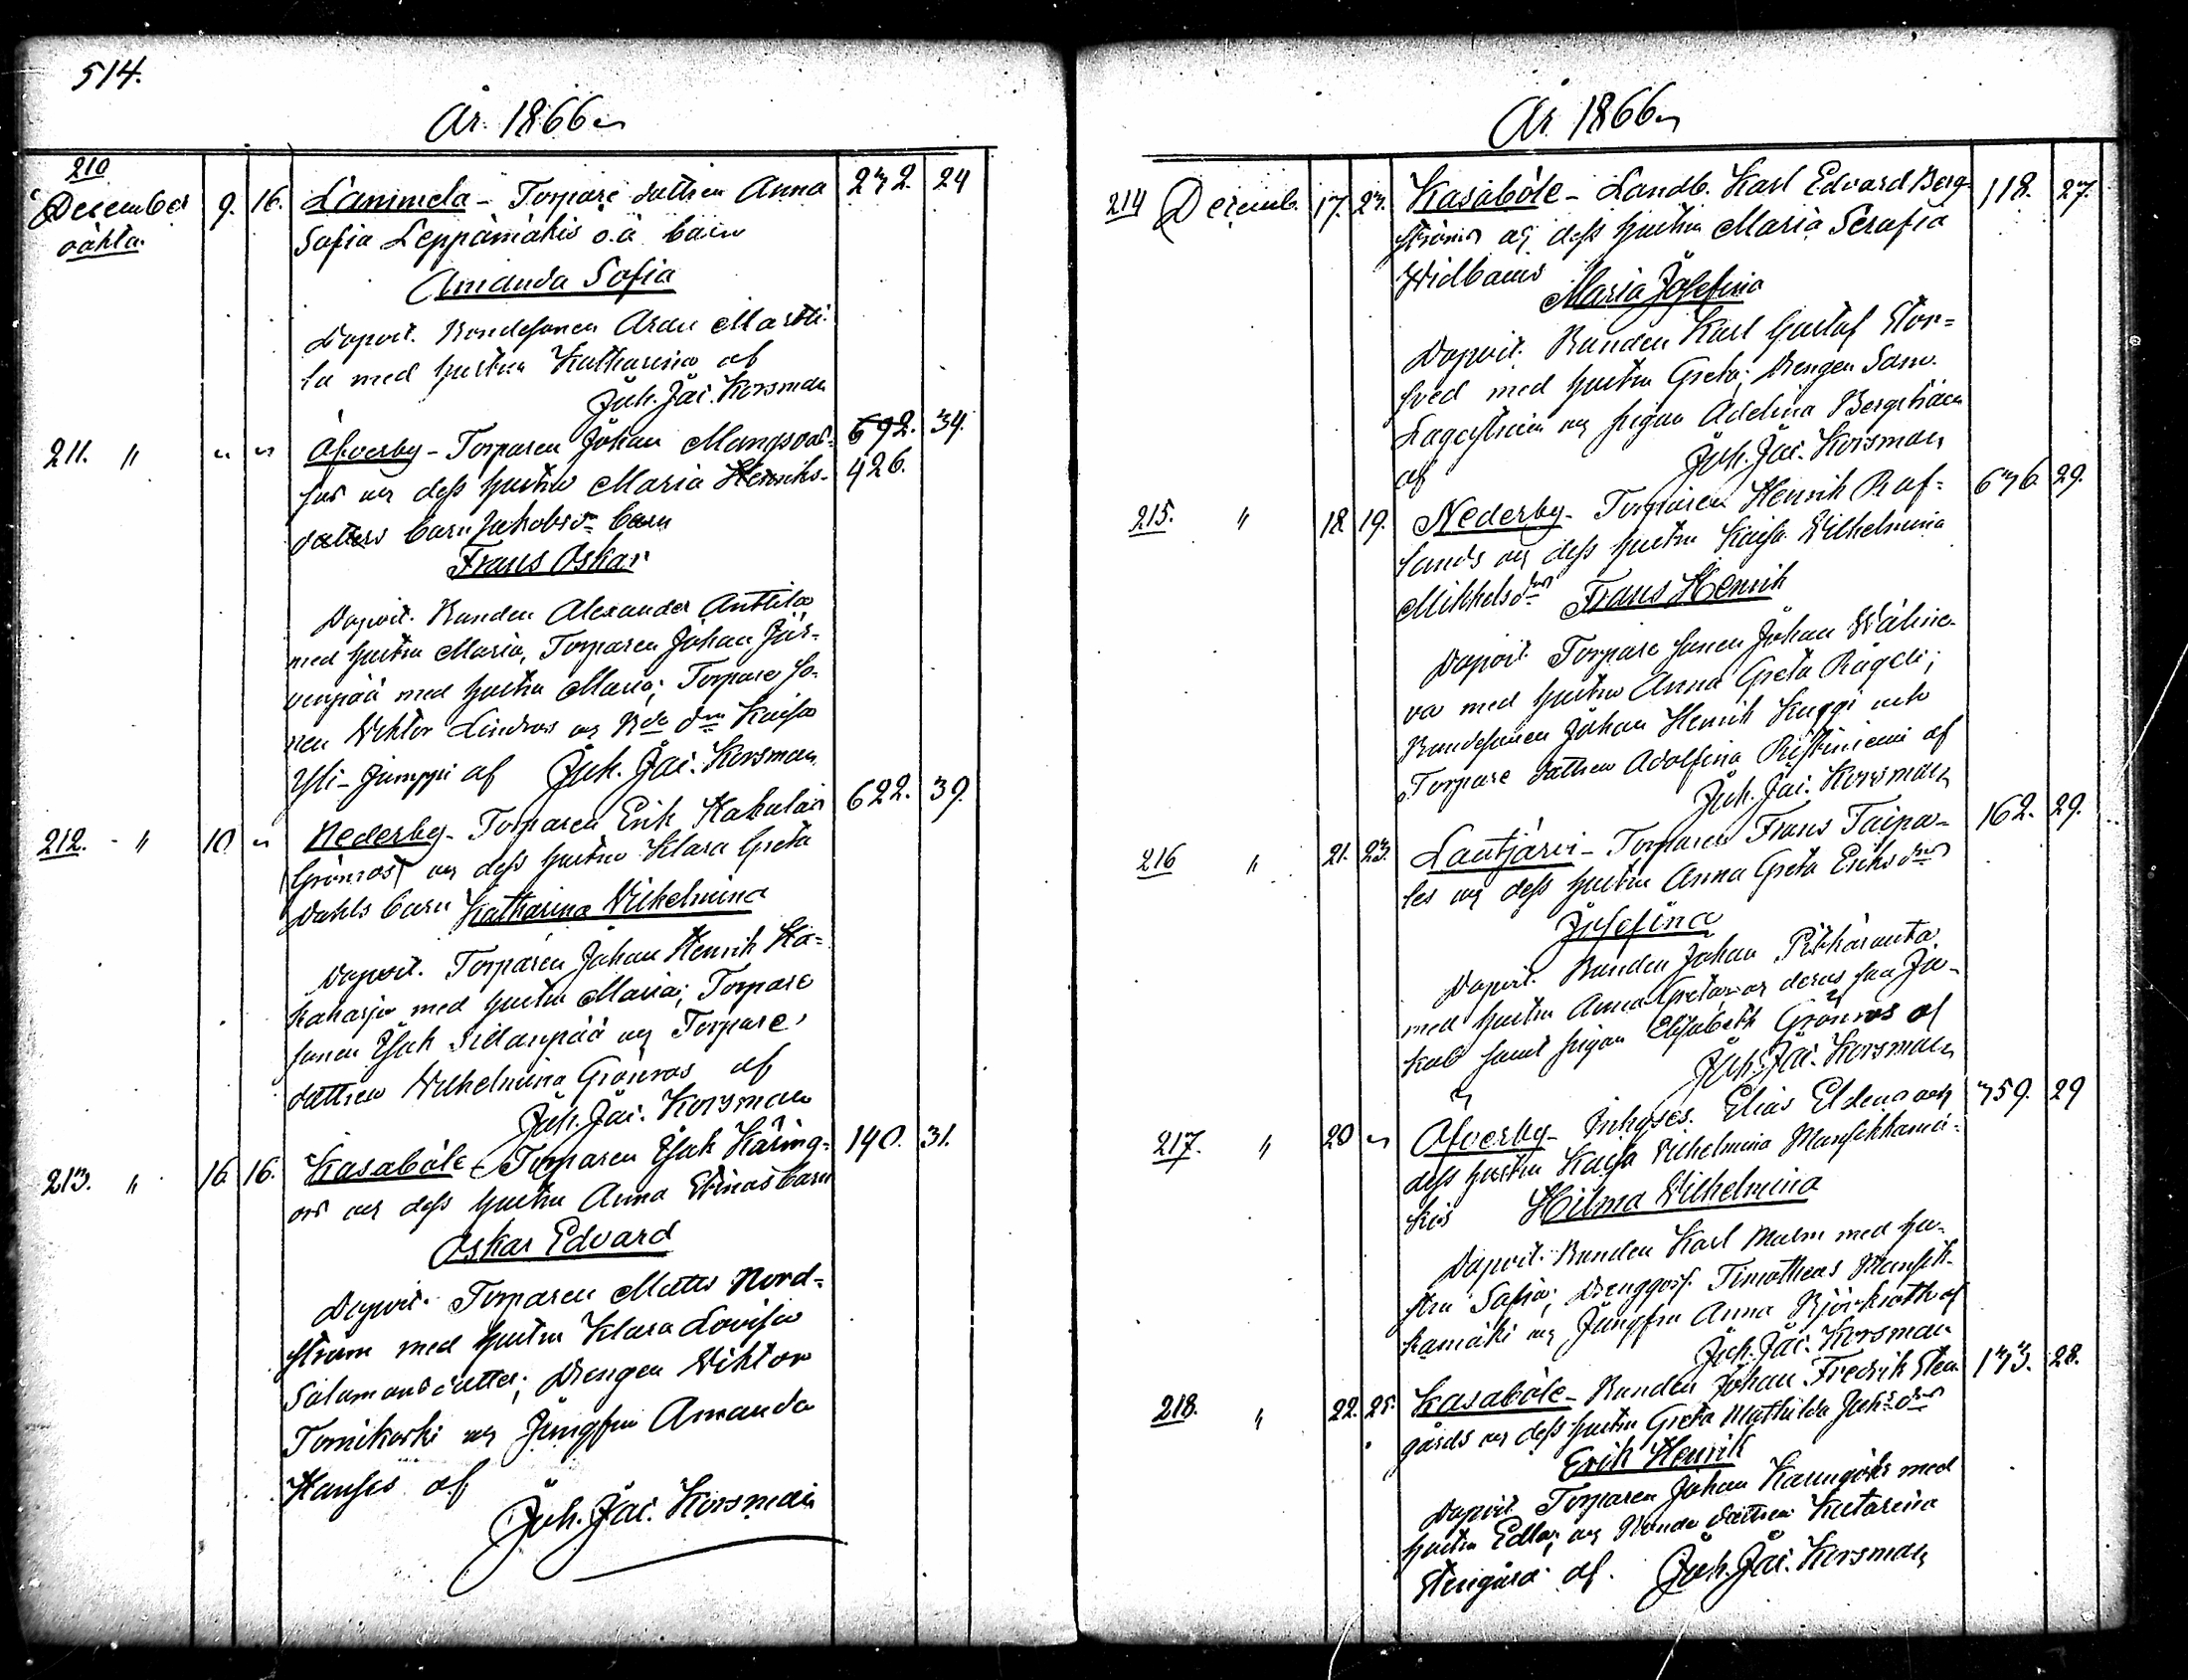 514.
År 1866
210
December 9. 16. Lammela - Torpare dottren Anna 232. 24
oäkta
Sofia Leppämäkis o.ä barn
Amanda Sofia
Dopvit. Bondesonen Aran Martti-
la med hustru Katharina af
Joh. Jac. Korsman
211. " " " Åfverby - Torparen Johan Mangsvas- 692. 34.
sas och dess hustru Maria Henriks- 426.
dotters barn Jakobsdr barn
Frans Oskar
Dopvit. Bonden Alexander Anttila
med hustru Maria, Torparen Johan Jär-
venpää med hustru Maria; Torpare so-
nen Viktor Lindros och Bde dtn Kaisa
Yli-Jumppi af Joh. Jac. Korsman
212. " 10 " Nederby - Torparen Erik Hakalas 622. 39.
(Grönros) och dess hustru Klara Greta
Dahls barn Katharina Vilhelmina
Dopvit. Torparen Johan Henrik Ha-
kaharju med hustru Maria; Torpare
sonen Isak Sillanpää och Torpare
dottren Vilhelmina Grönros af
Joh. Jac. Korsman
213. " 16 16. Kasaböle - Torparen Isak Käring- 140. 31.
ors och dess hustru Anna Stinas barn
Oskar Edvard
Dopvit. Torparen Matts Nord-
ström med hustru Klara Lovisa
Salomonsdotter; Drengen Viktor
Tornikoski och Jungfru Amanda
Hanses af
Joh. Jac. Korsman
År 1866
214 Decemb. 17. 23. Kasaböle - Landb. Karl Edvard Berg- 118. 27.
ströms och dess hustru Maria Serafia
Widboms Maria Josefina
Dopvit. Bonden Karl Gustaf Stor-
sved med hustru Greta; Drengen Sam.
Lagerström och pigan Adelina Bergström
af Joh. Jac. Korsman
215. " 18 19. Nederby - Torparen Henrik Raf- 636. 29.
sands och dess hustru Kaisa Vilhelmina
Mikkelsdrs Frans Henrik
Dopvit. Torpare sonen Johan Wälime-
va med hustru Anna Greta Rägeli;
Bondesonen Johan Henrik Kuppi och
Torpare dottren Adolfina Ristiniemi af
Joh. Jac. Korsman
216 " 21. 23. Lautjärvi - Torparen Frans Taipa- 162. 29.
les och dess hustru Anna Greta Eriksdrs
Josefina
Dopvit. Bonden Johan Pitkäranta
med hustru Anna Greta och deras son Ja-
kob samt pigan Elisabeth Grönros af
Joh. Jac. Korsman
217. " 20 " Åfverby - Inhyses. Elias Eldens och 359. 29
dess hustru Kaisa Vilhelmina Mansikkamä-
kis Hilma Vilhelmina
Dopvit. Bonden Karl Malm med hu-
stru Sofia; Drenggoss. Timotheus Mansik-
kamäki och Jungfru Anna Björkroth af
Joh. Jac. Korsman
218. " 22. 25. Kasaböle - Bonden Johan Fredrik Sten- 133. 28.
gårds och dess hustru Greta Mathilda Johsdrs
Erik Henrik
Dopvit. Torparen Johan med
hustru Edla; och Bonde dottren Katarina
Stengård af. Joh. Jac. Korsman